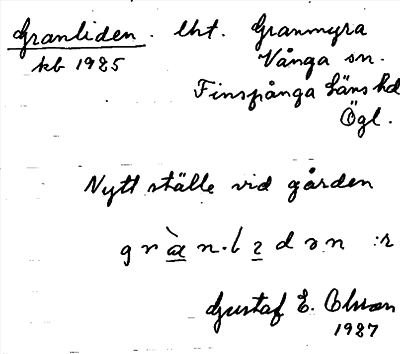 Granliden. lht. Granmyra
kb 1925 Vånga sn.
Finspånga läns hd
Ögl.
Nytt ställe vid gården
Gustaf E. Olsson
1927